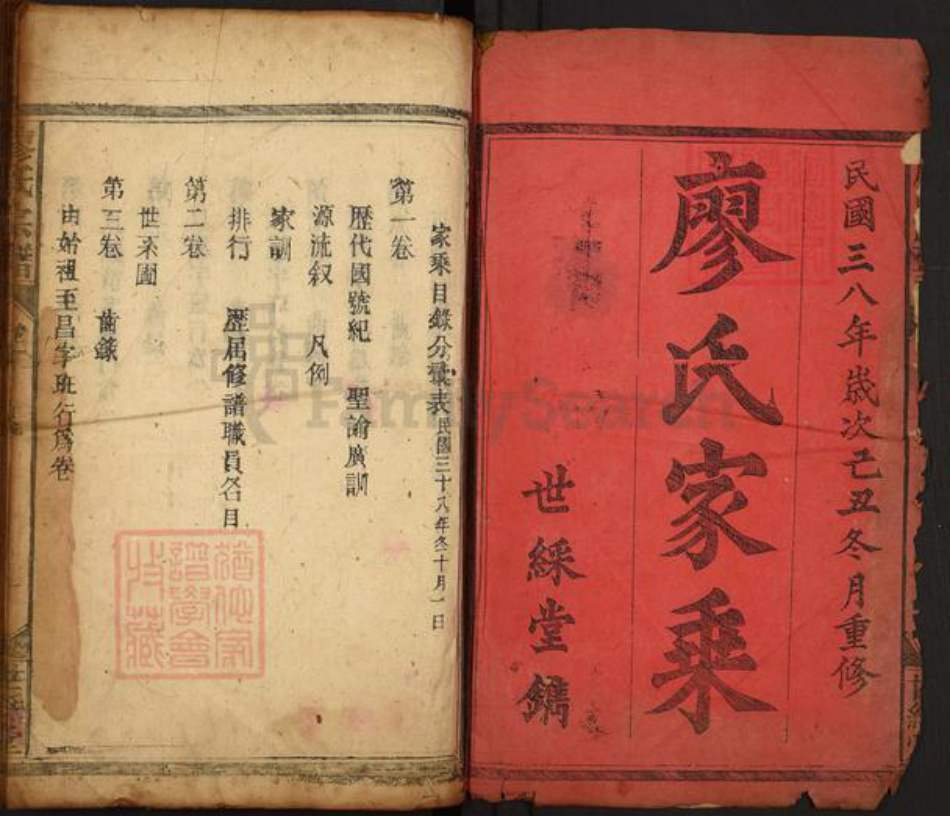 民國三八年歲次己丑冬月重修
廖氏家乘
世綵堂鐫
家乘目錄分號表民國三十八年冬十月一日
第一卷
歷代國號紀 聖諭廣訓
源流叙 凡例
家訓
排行 歷届修譜職員名目
第二卷
世系圖
第三卷 齒錄
由始祖至昌字班行爲卷
FamilySearch